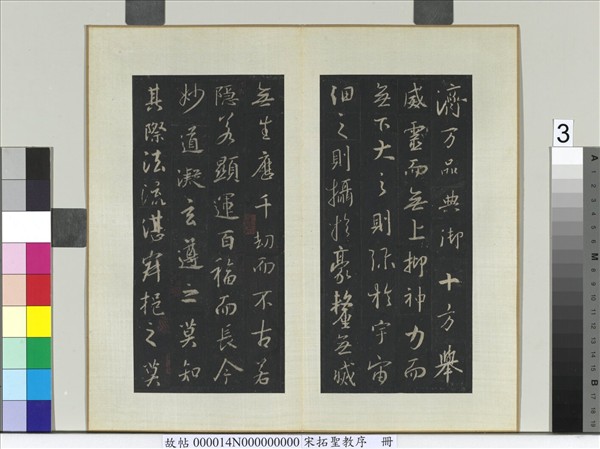 濟万品典御十方舉
威靈而無上抑神力而
無下大之則弥於宇宙
細之則攝於豪釐無滅
無生歷千劫而不古若
隱若顯運百福而長今
妙道凝玄遵之莫知
其際法流湛寂挹之莫
3
故帖 000014N000000000 宋拓聖教序 冊